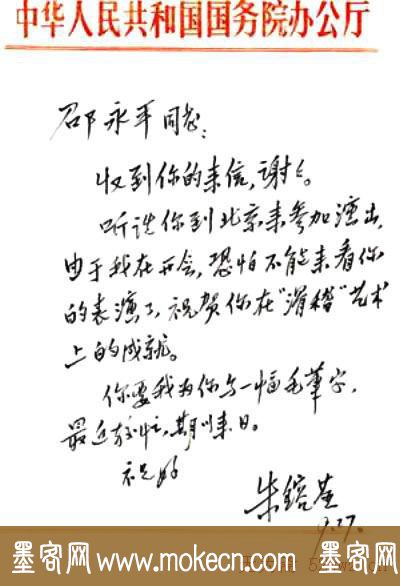 中华人民共和国国务院办公厅
邵永平同志:
收到你的来信,谢谢。
听说你到北京来参加演出,
由于我在开会,恐怕不能来看你
的表演了,祝贺你在“滑稽”艺术
上的成就。
你要我为你写一幅毛筆字,
最近较忙,期以来日。
祝好
朱镕基
9.27.
墨客网 www.mokecn.com 墨客网